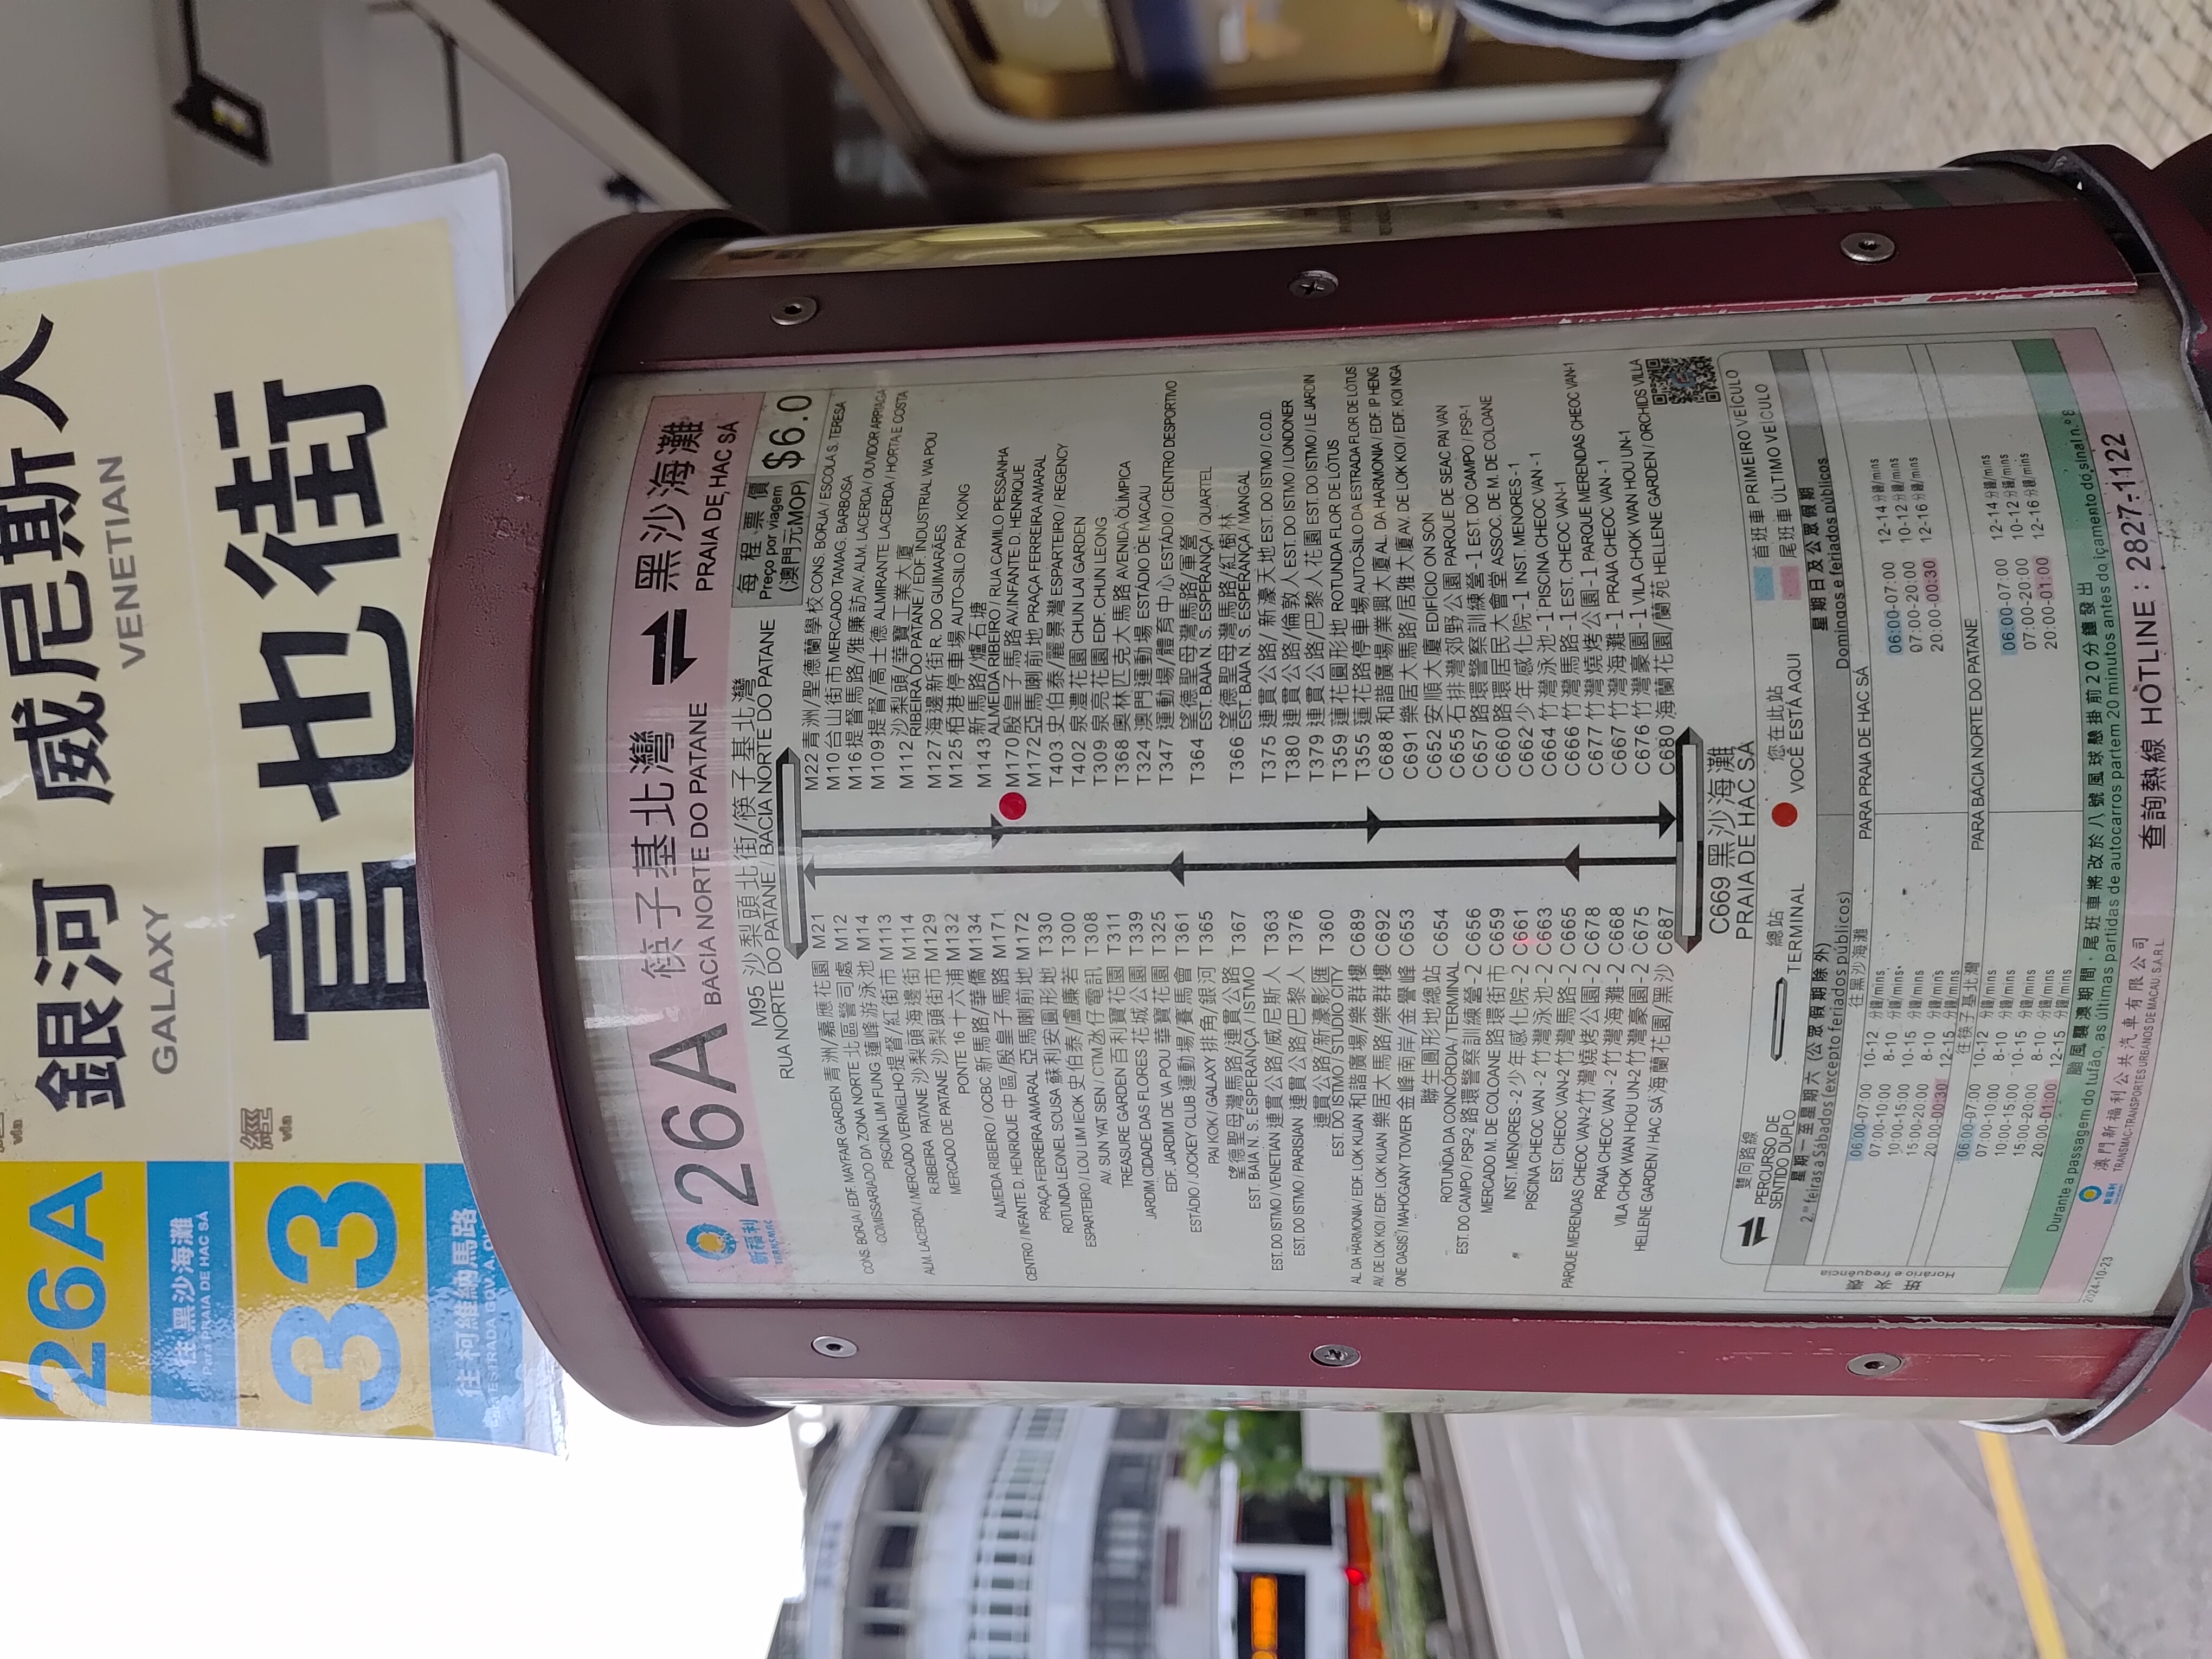 26A
往 黑沙海灘
Para PRAIA DE HAC SÁ
via
銀河
GALAXY
威尼斯人
VENETIAN
33
往柯維納馬路
經
via
官也街
新福利
TRANSMAC
26A
筷子基北灣
BACIA NORTE DO PATANE
黑沙海灘
PRAIA DE HAC SÁ
M95 沙梨頭北街/筷子基北灣
RUA NORTE DO PATANE / BACIA NORTE DO PATANE
每程票價
Preço por viagem
(澳門元MOP)
$6.0
M22 青洲/聖德蘭學校 CONS. BORJA / ESCOLA S. TERESA
M10 台山街市 MERCADO TAMAG. BARBOSA
M16 提督馬路/雅廉訪 AV. ALM. LACERDA / OUVIDOR ARRIAGA
M109 提督/高士德 ALMIRANTE LACERDA / HORTA E COSTA
M112 沙梨頭/華寶工業大廈
RIBEIRA DO PATANE / EDF. INDUSTRIAL WA POU
M127 海邊新街 R. DO GUIMARÃES
M125 栢港停車場 AUTO-SILO PAK KONG
M143 新馬路/爐石塘
ALMEIDA RIBEIRO / RUA CAMILO PESSANHA
M170 殷皇子馬路 AV.INFANTE D. HENRIQUE
M172 亞馬喇前地 PRAÇA FERREIRA AMARAL
T403 史伯泰/麗景灣 ESPARTEIRO / REGENCY
T402 泉澧花園 CHUN LAI GARDEN
T309 泉亮花園 EDF. CHUN LEONG
T368 奧林匹克大馬路 AVENIDA OLÍMPICA
T324 澳門運動場 ESTÁDIO DE MACAU
T347 運動場/體育中心 ESTÁDIO / CENTRO DESPORTIVO
T364 望德聖母灣馬路/軍營
EST. BAIA N. S. ESPERANÇA / QUARTEL
T366 望德聖母灣馬路/紅樹林
EST. BAIA N. S. ESPERANÇA / MANGAL
T375 連貫公路/新濠天地 EST. DO ISTMO / C.O.D.
T380 連貫公路/倫敦人 EST. DO ISTMO / LONDONER
T379 連貫公路/巴黎人花園 EST. DO ISTMO / LE JARDIN
T359 蓮花圓形地 ROTUNDA FLOR DE LÓTUS
T355 蓮花路停車場 AUTO-SILO DA ESTRADA FLOR DE LÓTUS
C688 和諧廣場/業興大廈 AL. DA HARMONIA / EDF. IP HENG
C691 樂居大馬路/居雅大廈 AV. DE LOK KOI / EDF. KOI NGA
C652 安順大廈 EDIFÍCIO ON SON
C655 石排灣郊野公園 PARQUE DE SEAC PAI VAN
C657 路環警察訓練營-1 EST. DO CAMPO / PSP-1
C660 路環居民大會堂 ASSOC. DE M. DE COLOANE
C662 少年感化院-1 INST. MENORES-1
C664 竹灣泳池-1 PISCINA CHEOC VAN - 1
C666 竹灣馬路-1 EST. CHEOC VAN-1
C677 竹灣燒烤公園-1 PARQUE MERENDAS CHEOC VAN-1
C667 竹灣海灘-1 PRAIA CHEOC VAN - 1
C676 竹灣豪園-1 VILA CHOK WAN HOU UN-1
C680 海蘭花園/蘭苑 HELLENE GARDEN / ORCHIDS VILLA
CONS. BORJA / EDF. MAYFAIR GARDEN 青洲/嘉應花園 M21
COMISSARIADO DA ZONA NORTE 北區警司處 M12
PISCINA LIM FUNG 蓮峰游泳池 M14
ALM. LACERDA / MERCADO VERMELHO 提督/紅街市 M113
R.RIBEIRA PATANE 沙梨頭海邊街 M114
MERCADO DE PATANE 沙梨頭街市 M129
PONTE 16 十六浦 M132
ALMEIDA RIBEIRO / OCBC 新馬路/華僑 M134
CENTRO / INFANTE D. HENRIQUE 中區/殷皇子馬路 M171
PRAÇA FERREIRA AMARAL 亞馬喇前地 M172
ROTUNDA LEONEL SOUSA 蘇利安圓形地 T330
ESPARTEIRO / LOU LIM IEOK 史伯泰/盧廉若 T300
AV. SUN YAT SEN / CTM 氹仔電訊 T308
TREASURE GARDEN 百利寶花園 T311
JARDIM CIDADE DAS FLORES 花城公園 T339
EDF. JARDIM DE VA POU 華寶花園 T325
ESTÁDIO / JOCKEY CLUB 運動場/賽馬會 T361
PAI KOK / GALAXY 排角/銀河 T365
望德聖母灣馬路/連貫公路 T367
EST. BAIA N. S. ESPERANÇA / ISTMO
EST. DO ISTMO / VENETIAN 連貫公路/威尼斯人 T363
EST. DO ISTMO / PARISIAN 連貫公路/巴黎人 T376
連貫公路/新濠影匯 T360
EST. DO ISTMO / STUDIO CITY
AL. DA HARMONIA / EDF. LOK KUAN 和諧廣場/樂群樓 C689
AV. DE LOK KOI / EDF. LOK KUAN 樂居大馬路/樂群樓 C692
ONE OASIS / MAHOGANY TOWER 金峰南岸/金譽峰 C653
聯生圓形地總站 C654
ROTUNDA DA CONCÓRDIA / TERMINAL
EST. DO CAMPO / PSP-2 路環警察訓練營-2 C656
MERCADO M. DE COLOANE 路環街市 C659
INST. MENORES - 2 少年感化院-2 C661
PISCINA CHEOC VAN - 2 竹灣泳池-2 C663
EST. CHEOC VAN-2 竹灣馬路-2 C665
PARQUE MERENDAS CHEOC VAN-2 竹灣燒烤公園-2 C678
PRAIA CHEOC VAN - 2 竹灣海灘-2 C668
VILA CHOK WAN HOU UN-2 竹灣豪園-2 C675
HELLENE GARDEN / HAC SÁ 海蘭花園/黑沙 C687
C669 黑沙海灘
PRAIA DE HAC SÁ
雙向路線
PERCURSO DE
SENTIDO DUPLO
總站
TERMINAL
您在此站
VOCÊ ESTÁ AQUI
首班車 PRIMEIRO VEÍCULO
尾班車 ÚLTIMO VEÍCULO
班次
Horário e frequência
星期一至星期六 (公眾假期除外)
2.ªs feiras a Sábados (excepto feriados públicos)
星期日及公眾假期
Domingos e feriados públicos
往黑沙海灘 PARA PRAIA DE HAC SÁ
06:00-07:00 10-12 分鐘/mins
07:00-10:00 8-10 分鐘/mins
10:00-15:00 10-15 分鐘/mins
15:00-20:00 8-10 分鐘/mins
20:00-00:30 12-15 分鐘/mins
06:00-07:00 12-14 分鐘/mins
07:00-20:00 10-12 分鐘/mins
20:00-00:30 12-16 分鐘/mins
往筷子基北灣 PARA BACIA NORTE DO PATANE
06:00-07:00 10-12 分鐘/mins
07:00-10:00 8-10 分鐘/mins
10:00-15:00 10-15 分鐘/mins
15:00-20:00 8-10 分鐘/mins
20:00-01:00 12-15 分鐘/mins
06:00-07:00 12-14 分鐘/mins
07:00-20:00 10-12 分鐘/mins
20:00-01:00 12-16 分鐘/mins
颱風襲澳期間,尾班車將改於八號風球懸掛前20分鐘發出
Durante a passagem do tufão, as últimas partidas de autocarros partem 20 minutos antes do içamento do sinal n.º 8
新福利
澳門新福利公共汽車有限公司
TRANSMAC-TRANSPORTES URBANOS DE MACAU S.A.R.L
查詢熱線 HOTLINE : 2827-1122
2024-10-23